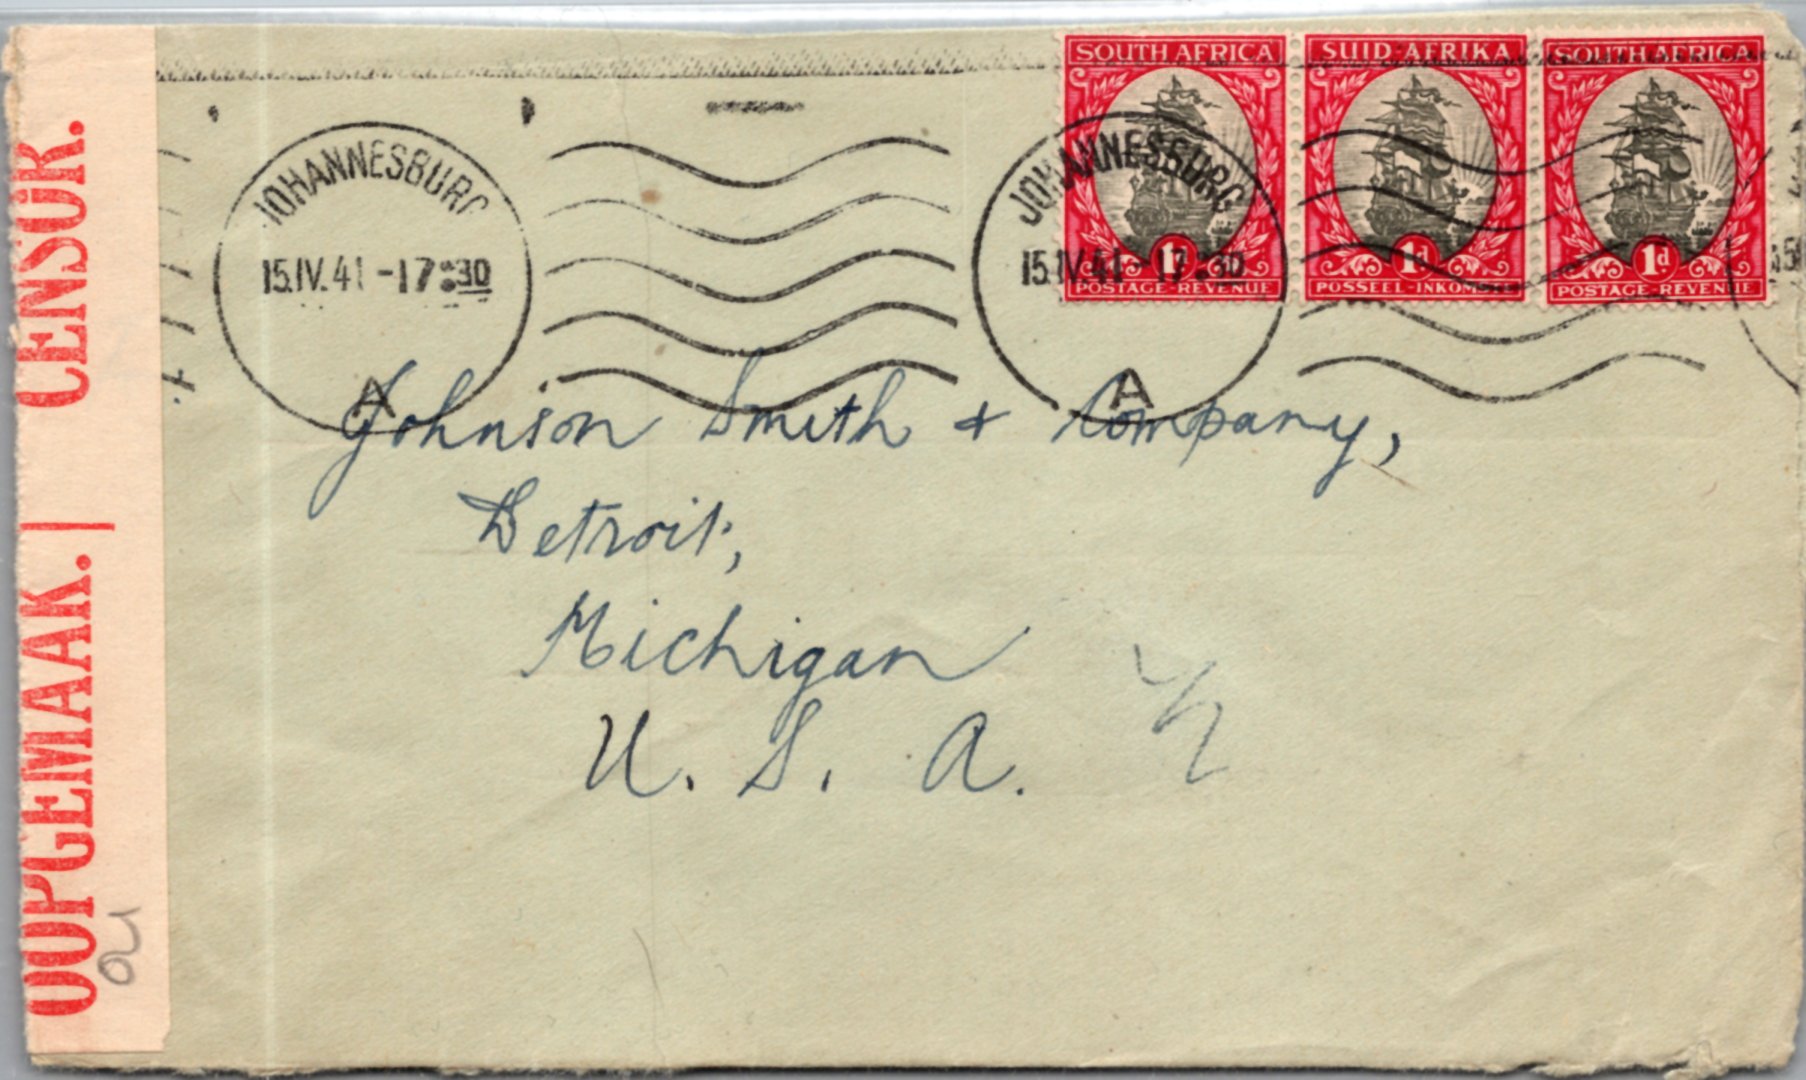 SOUTH AFRICA SUID-AFRIKA SOUTH AFRICA
1d 1d
POSTAGE-REVENUE POSSEEL-INKOM POSTAGE-REVENUE
JOHANNESBURG
15.IV.41-17:30
A
JOHANNESBURG
15.IV.41-17:30
A
Johnson Smith & Company,
Detroit,
Michigan
U. S. A.
OOPGEMAAK. | CENSOR.